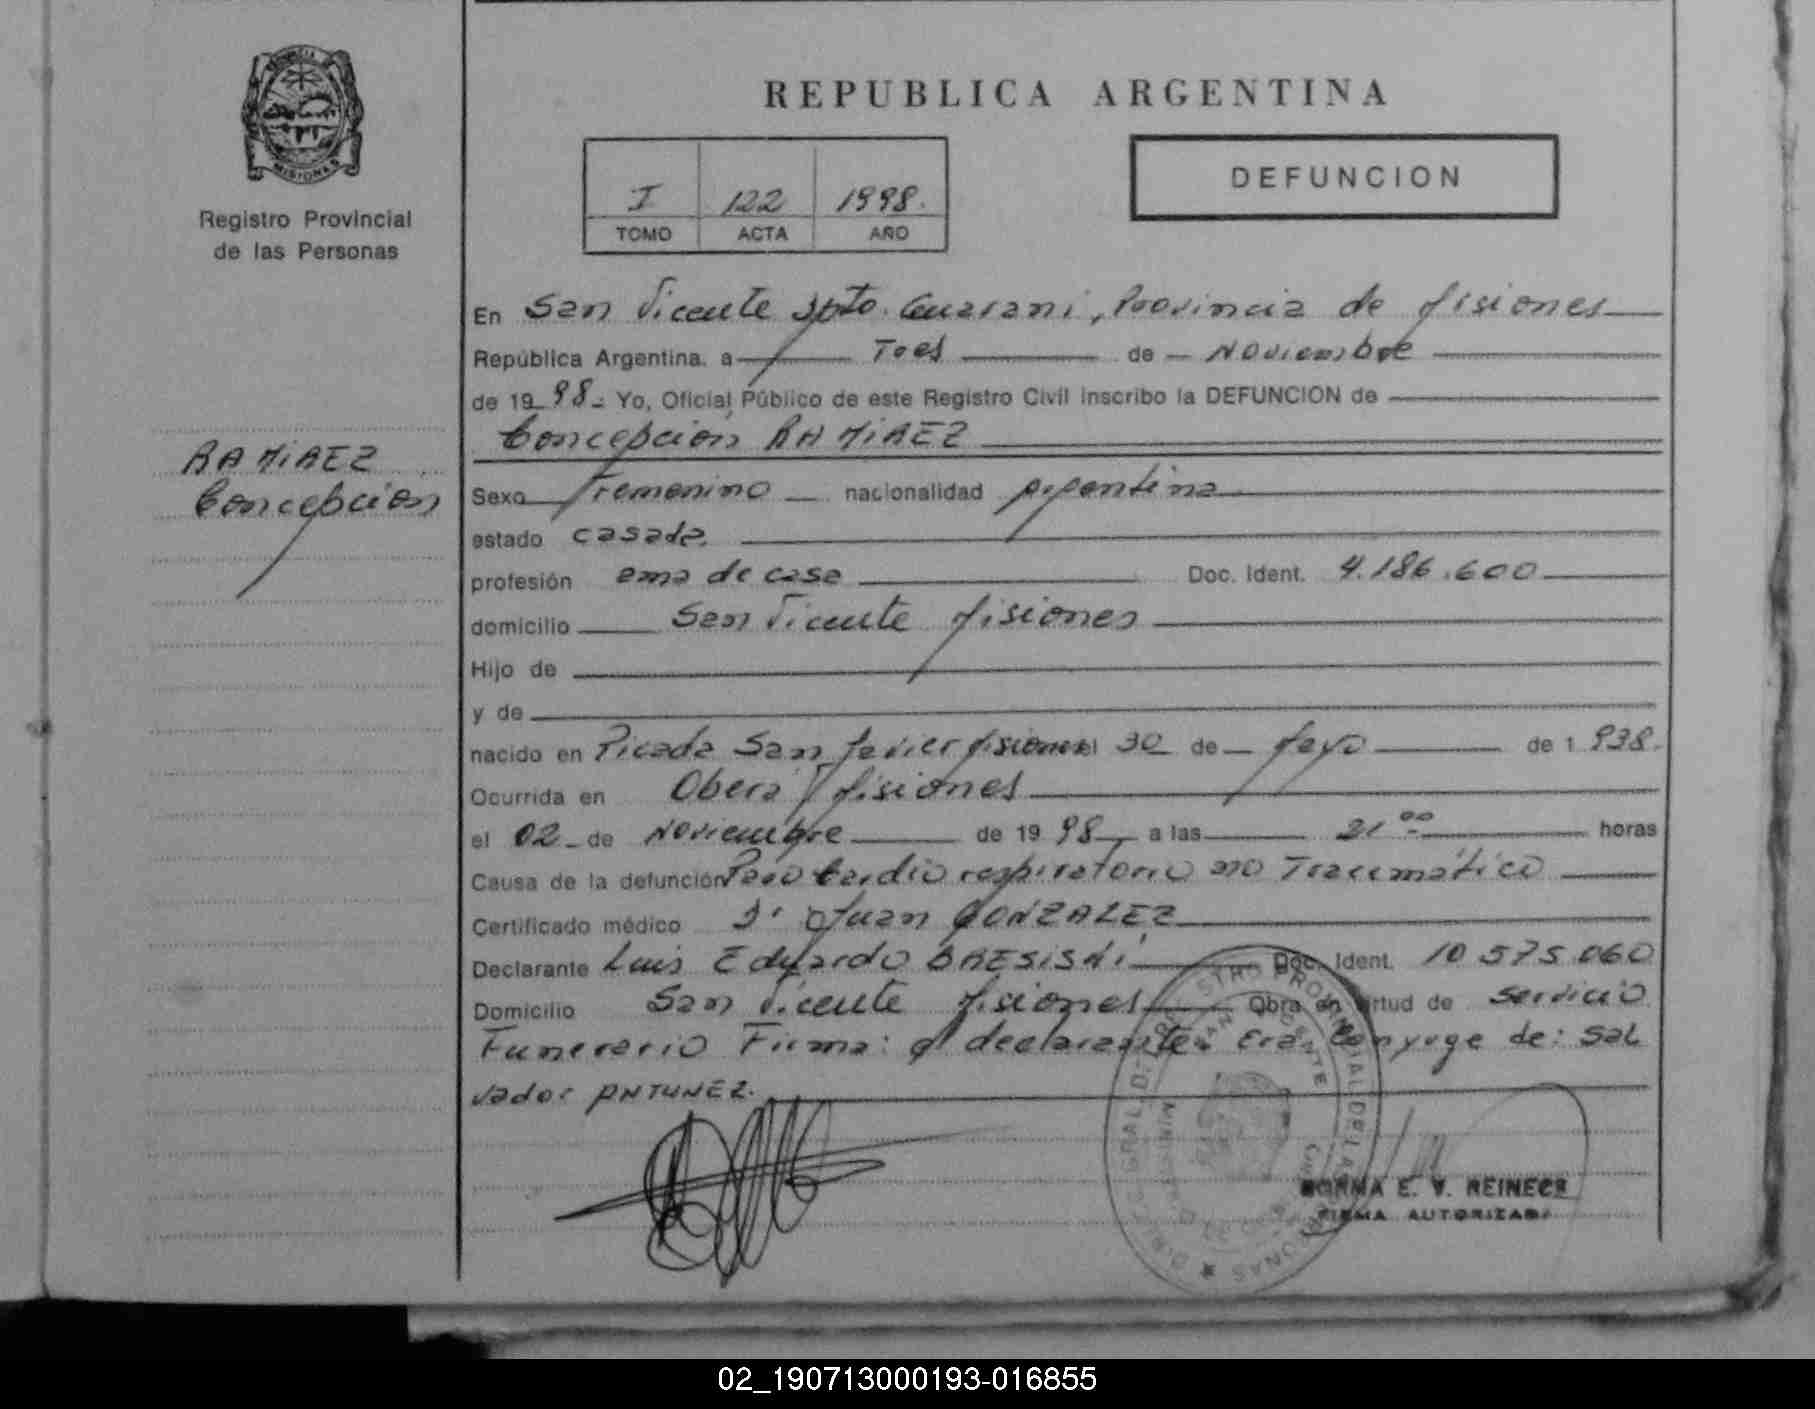 PROVINCIA DE
MISIONES
Registro Provincial
de las Personas
REPUBLICA ARGENTINA
I 122 1998.
TOMO ACTA AÑO
DEFUNCION
En San Vicente Dpto. Guarani, Provincia de Misiones
República Argentina. a Tres de Noviembre
de 1998. Yo, Oficial Público de este Registro Civil inscribo la DEFUNCION de
Concepción RAMIREZ
RAMIREZ
Concepcion
Sexo Femenino nacionalidad Argentina
estado casada.
profesión ama de casa Doc. Ident. 4.186.600
domicilio San Vicente Misiones
Hijo de
y de
nacido en Picada San Javier Misiones el 30 de Mayo de 1938.
Ocurrida en Obera Misiones
el 02 de Noviembre de 1998 a las 21 00 horas
Causa de la defunción Paro Cardio respiratorio no Traumático
Certificado médico Dr Juan GONZALEZ
Declarante Luis Eduardo BRESISKI Doc. Ident. 10.575.060
Domicilio San Vicente Misiones Obra en virtud de servicio
Funerario Firma: el declarante. Era Conyuge de: Sal
vador ANTUNEZ.
NORMA E. V. REINECK
FIRMA AUTORIZADA
02_190713000193-016855